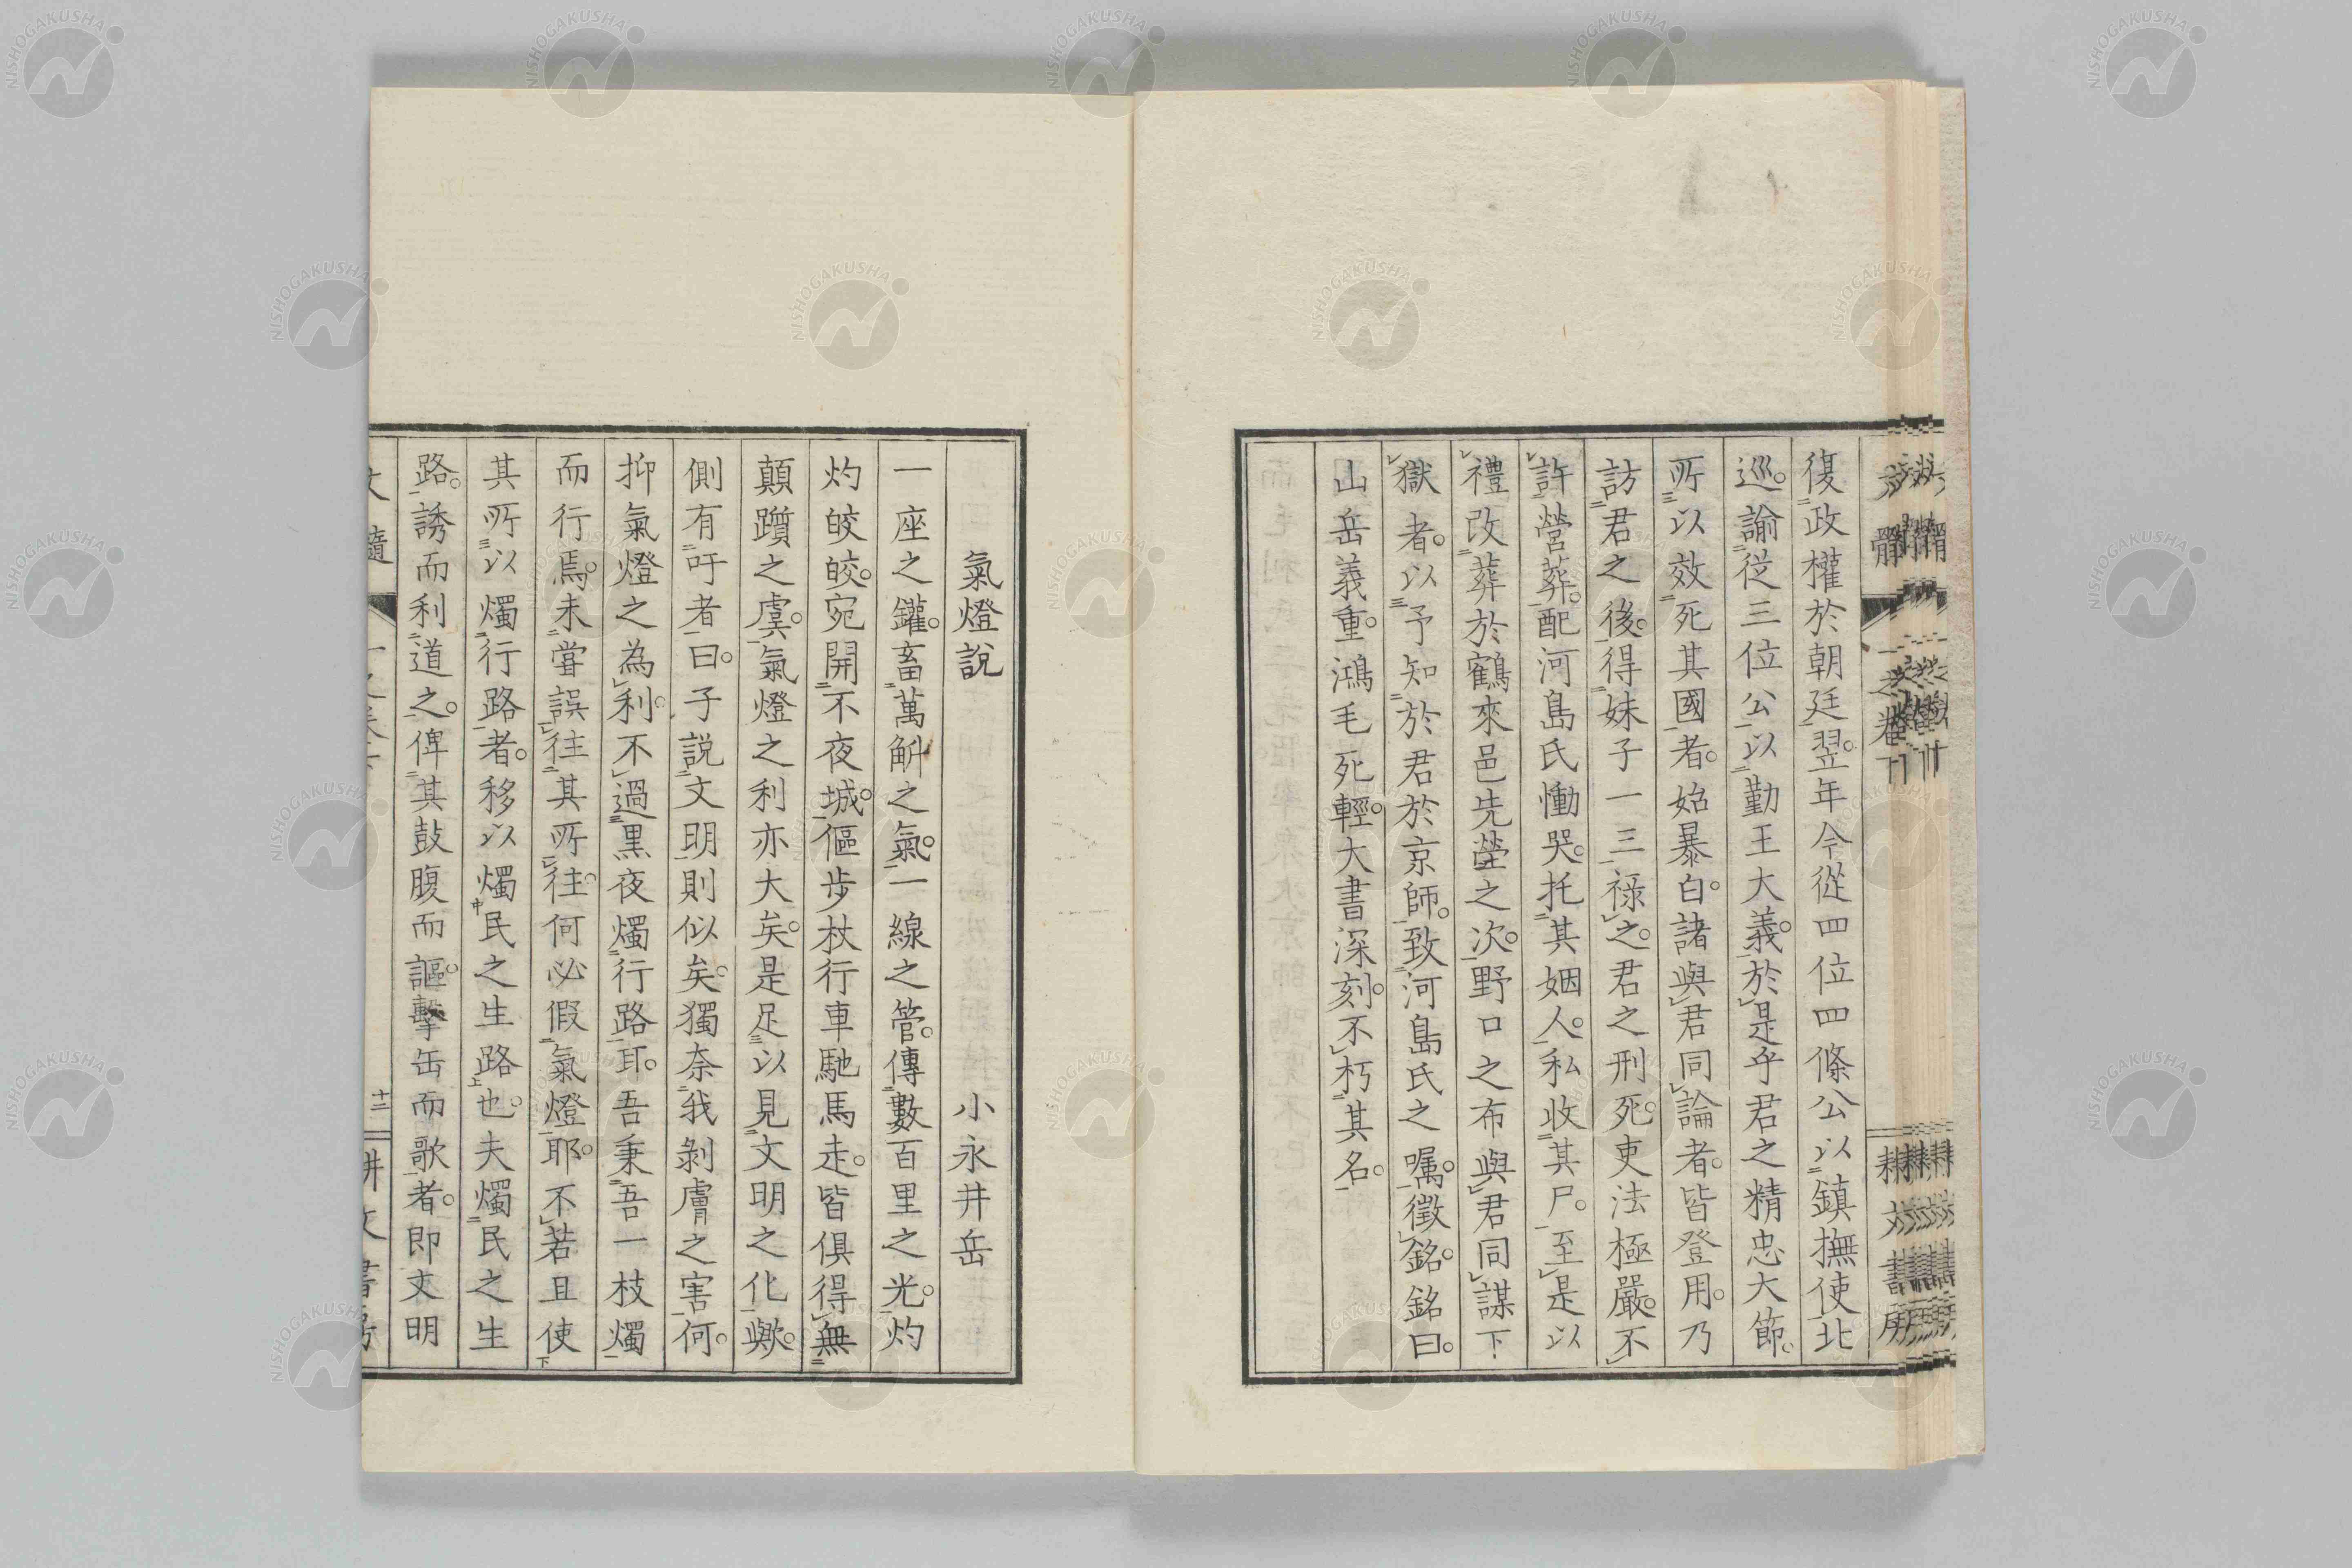 復政權於朝廷。翌年今從四位四條公以鎮撫使北
巡。諭從三位公以勤王大義。於是乎君之精忠大節。
所以效死其國者。始暴白。諸與君同論者。皆登用。乃
訪君之後。得妹子一三祿之。君之刑死。吏法極嚴。不
許營葬。配河島氏慟哭。托其姻人。私收其尸。至是以
禮改葬於鶴來邑先塋之次。野口之布與君同謀下
獄者。以予知於君於京師。致河島氏之囑。徵銘。銘曰。
山岳義重。鴻毛死輕。大書深刻。不朽其名。
氣燈説
小永井岳
一座之鑵。畜萬斛之氣。一線之管。傳數百里之光。灼
灼皎皎。宛開不夜城。傴步杖行車馳馬走。皆俱得無
顛躓之虞。氣燈之利亦大矣。是足以見文明之化歟。
側有吁者曰。子説文明則似矣。獨奈我剝膚之害何。
抑氣燈之為利。不過黑夜燭行路耳。吾秉吾一枝燭
而行焉。未嘗誤往其所往。何必假氣燈耶。不若且使
其所以燭行路者。移以燭民之生路也。夫燭民之生
路。誘而利道之。俾其鼓腹而謳。擊缶而歌者。即文明
十二